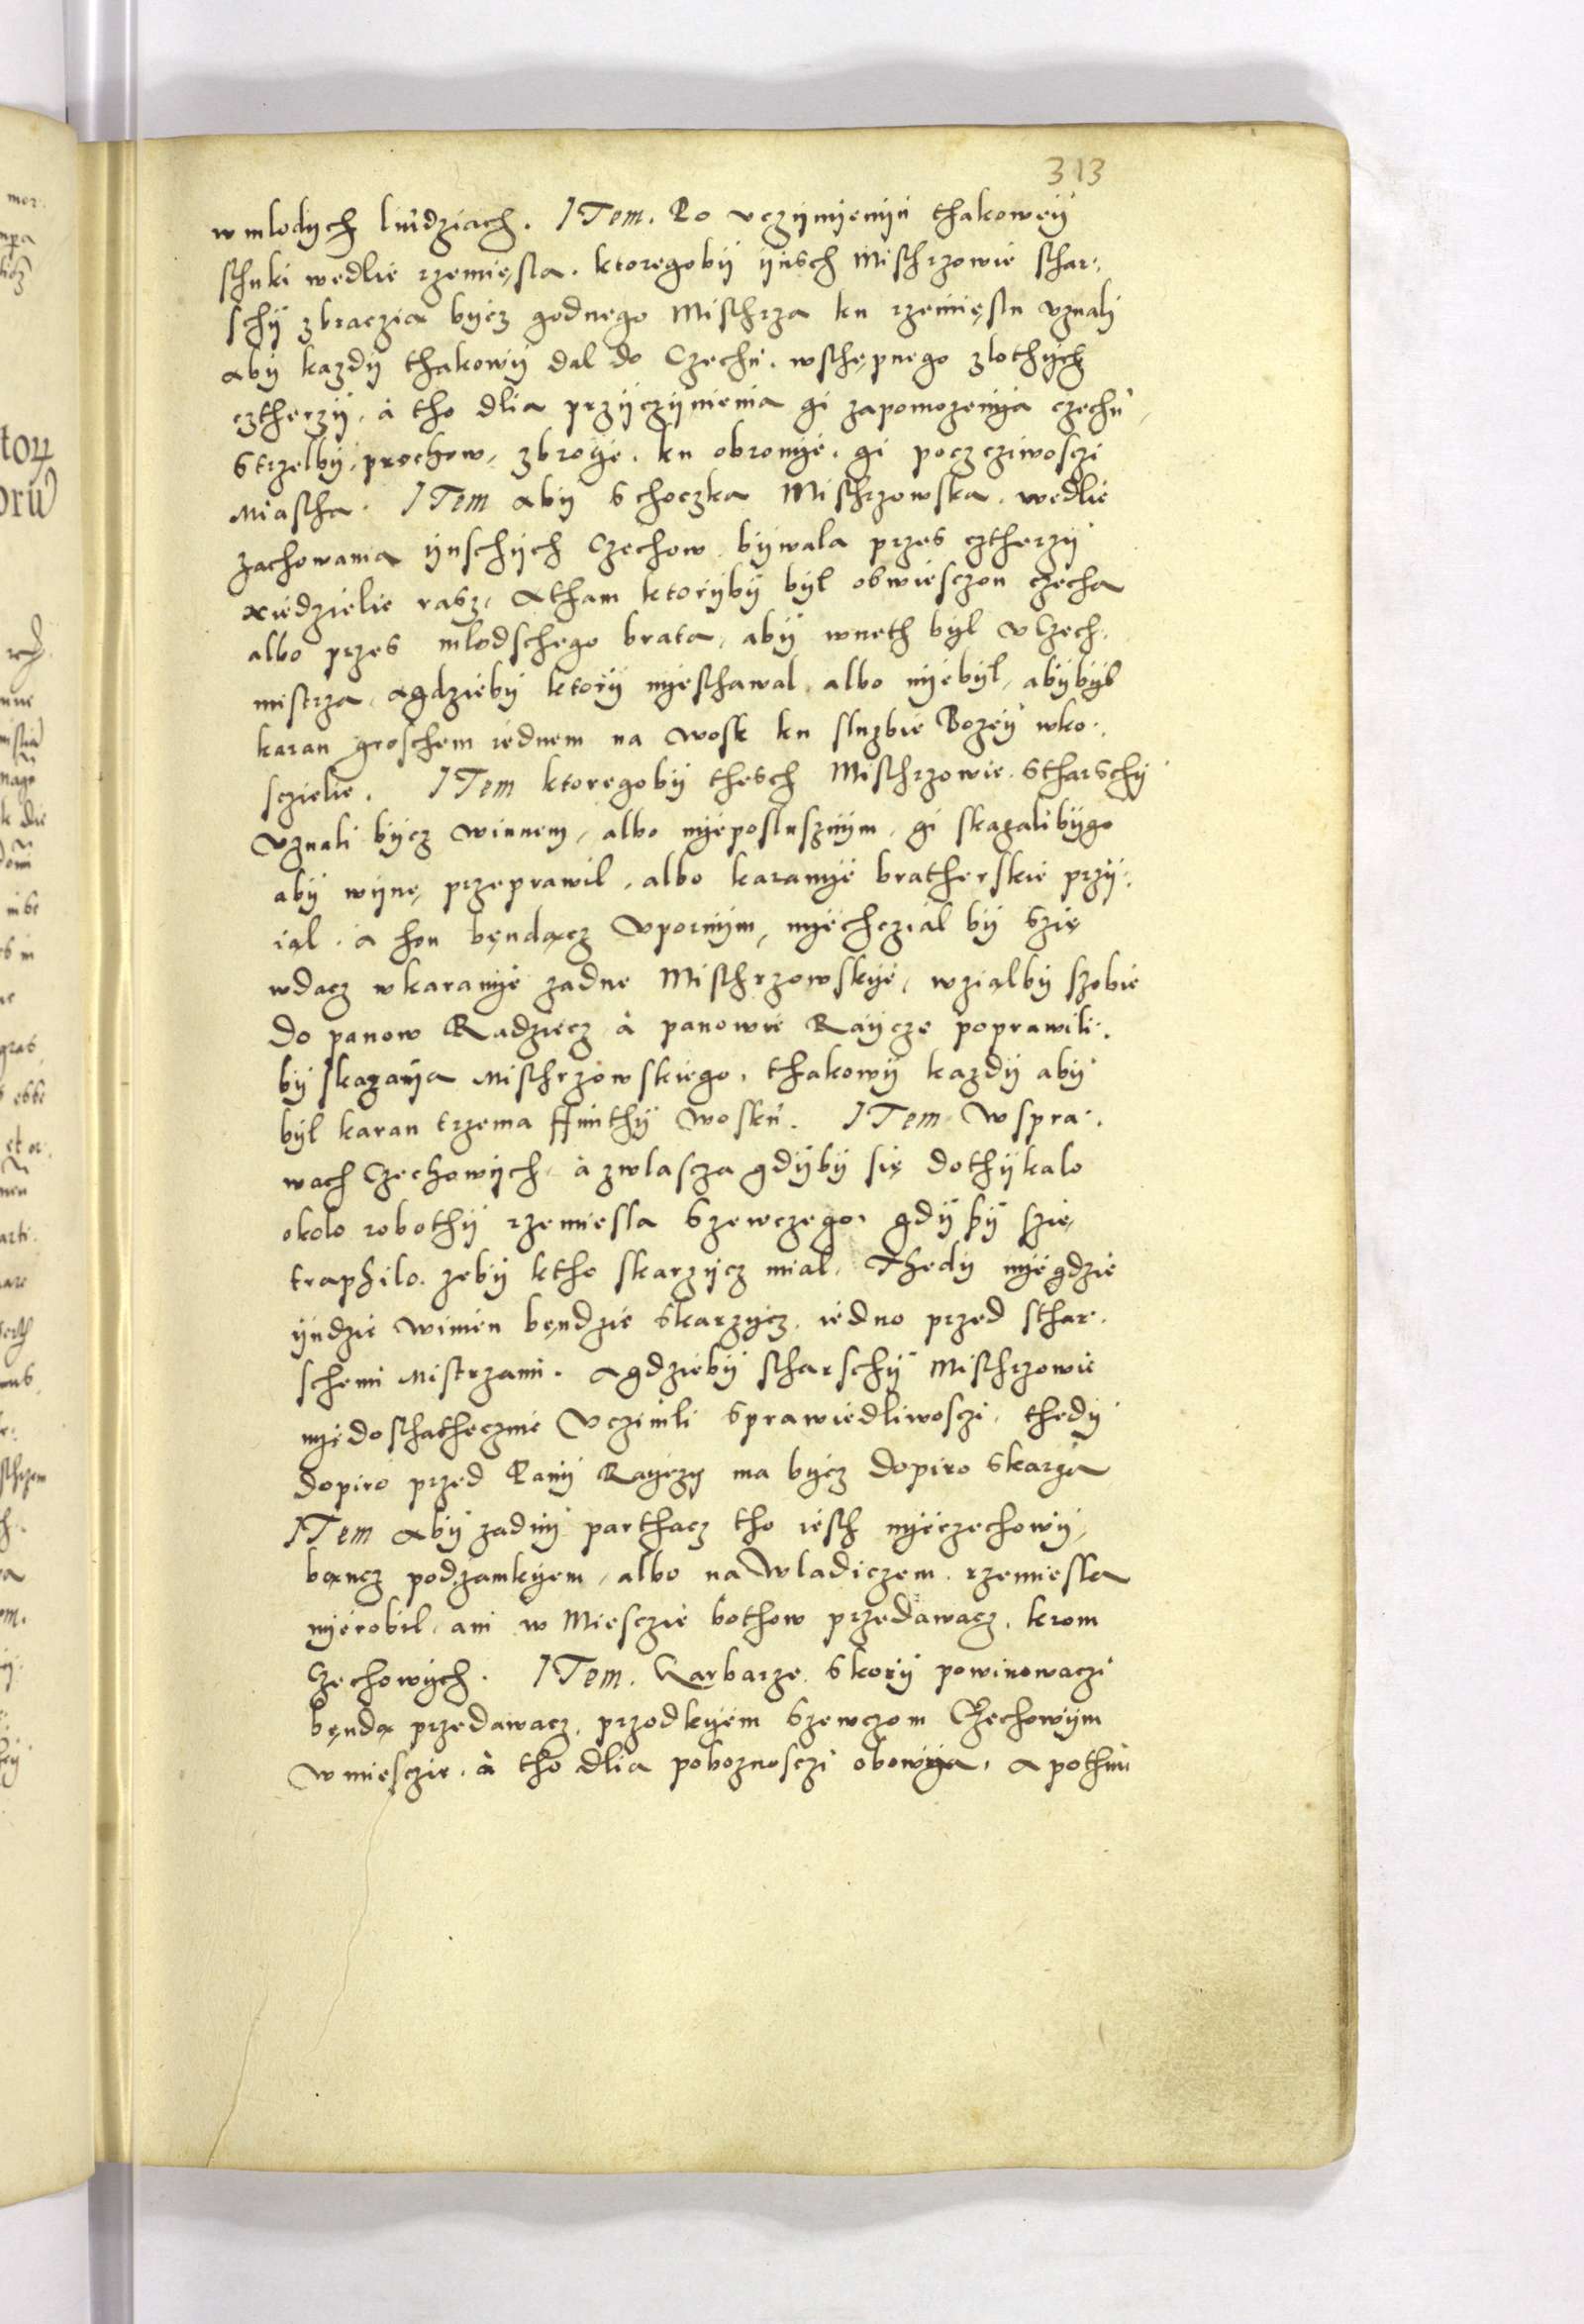 313
w mlodych liudziach. ITem. Po vczynyenyu thakowey
sthuki wedlie rzemięsla. ktoregoby ynsch Misthrzowie sthar,
schy zbraczią bycz godnego Misthrza ku rzemięslu vznali
aby kazdy thakowy dal do Czechu. wsthępnego zlothych
cztherzy, à tho dlia przyczynienia gi zapomozenya czechu,
strzelby, prochow, zbroye. ku obronye. gi poczcziwosczi
Miastha. ITem aby schoczka Misthrzowska. wedlie
zachowania ynschych Czechow bywala przes cztherzy
niedzielie rasz, Atham ktoryby byl obwiesczon czecha
albo przes mlodschego brata, aby wneth byl vCzech,
mistrza, agdzieby ktory nyesthawal albo nyebyl, abybyl
karan groschem iednem na wosk ku sluzbie Bozey wko,
sczielie. ITem ktoregoby thesch Misthrzowie stharschy
vznali bycz winnem, albo nyeposlusznym, gi skazalibygo
aby wynę przeprawil, albo karanye bratherskie przy,
iąl. a hon będącz Vpornym, nyechczial by szię
wdacz wkaranye zadne Misthrzowskye, wziąlby szobie
do panow Radziecz à panowie Raycze poprawili,
by skazanya Misthrzowskiego, thakowy kazdy aby
byl karan trzema ffunthy wosku. ITem W spra,
wach Czechowych, à zwlascza gdyby się dothykalo
okolo robothy rzemiesla szewczego, gdy by szię
traphilo. zeby ktho skarzycz mial, Thedy nyegdzie
yndzie winien bęndzie skarzycz, iedno przed sthar,
schemi Mistrzami. Agdzieby stharschy Misthrzowie
nyedosthathecznie Vczinili sprawiedliwosczi, thedy
dopiro przed Pany Rayczy ma bycz dopiro skarga
ITem aby zadny parthacz tho iesth nyeczechowy,
bąncz podzamkyem, albo na Wladiczem. rzemiesla
nyerobil, ani w Miesczie bothow przedawacz, krom
Czechowych. ITem. Garbarze skory powinowaczi
będą przedawacz, przodkyem szewczom Czechowym
w miesczie. à tho dlia poboznosczi obowya, a pothim